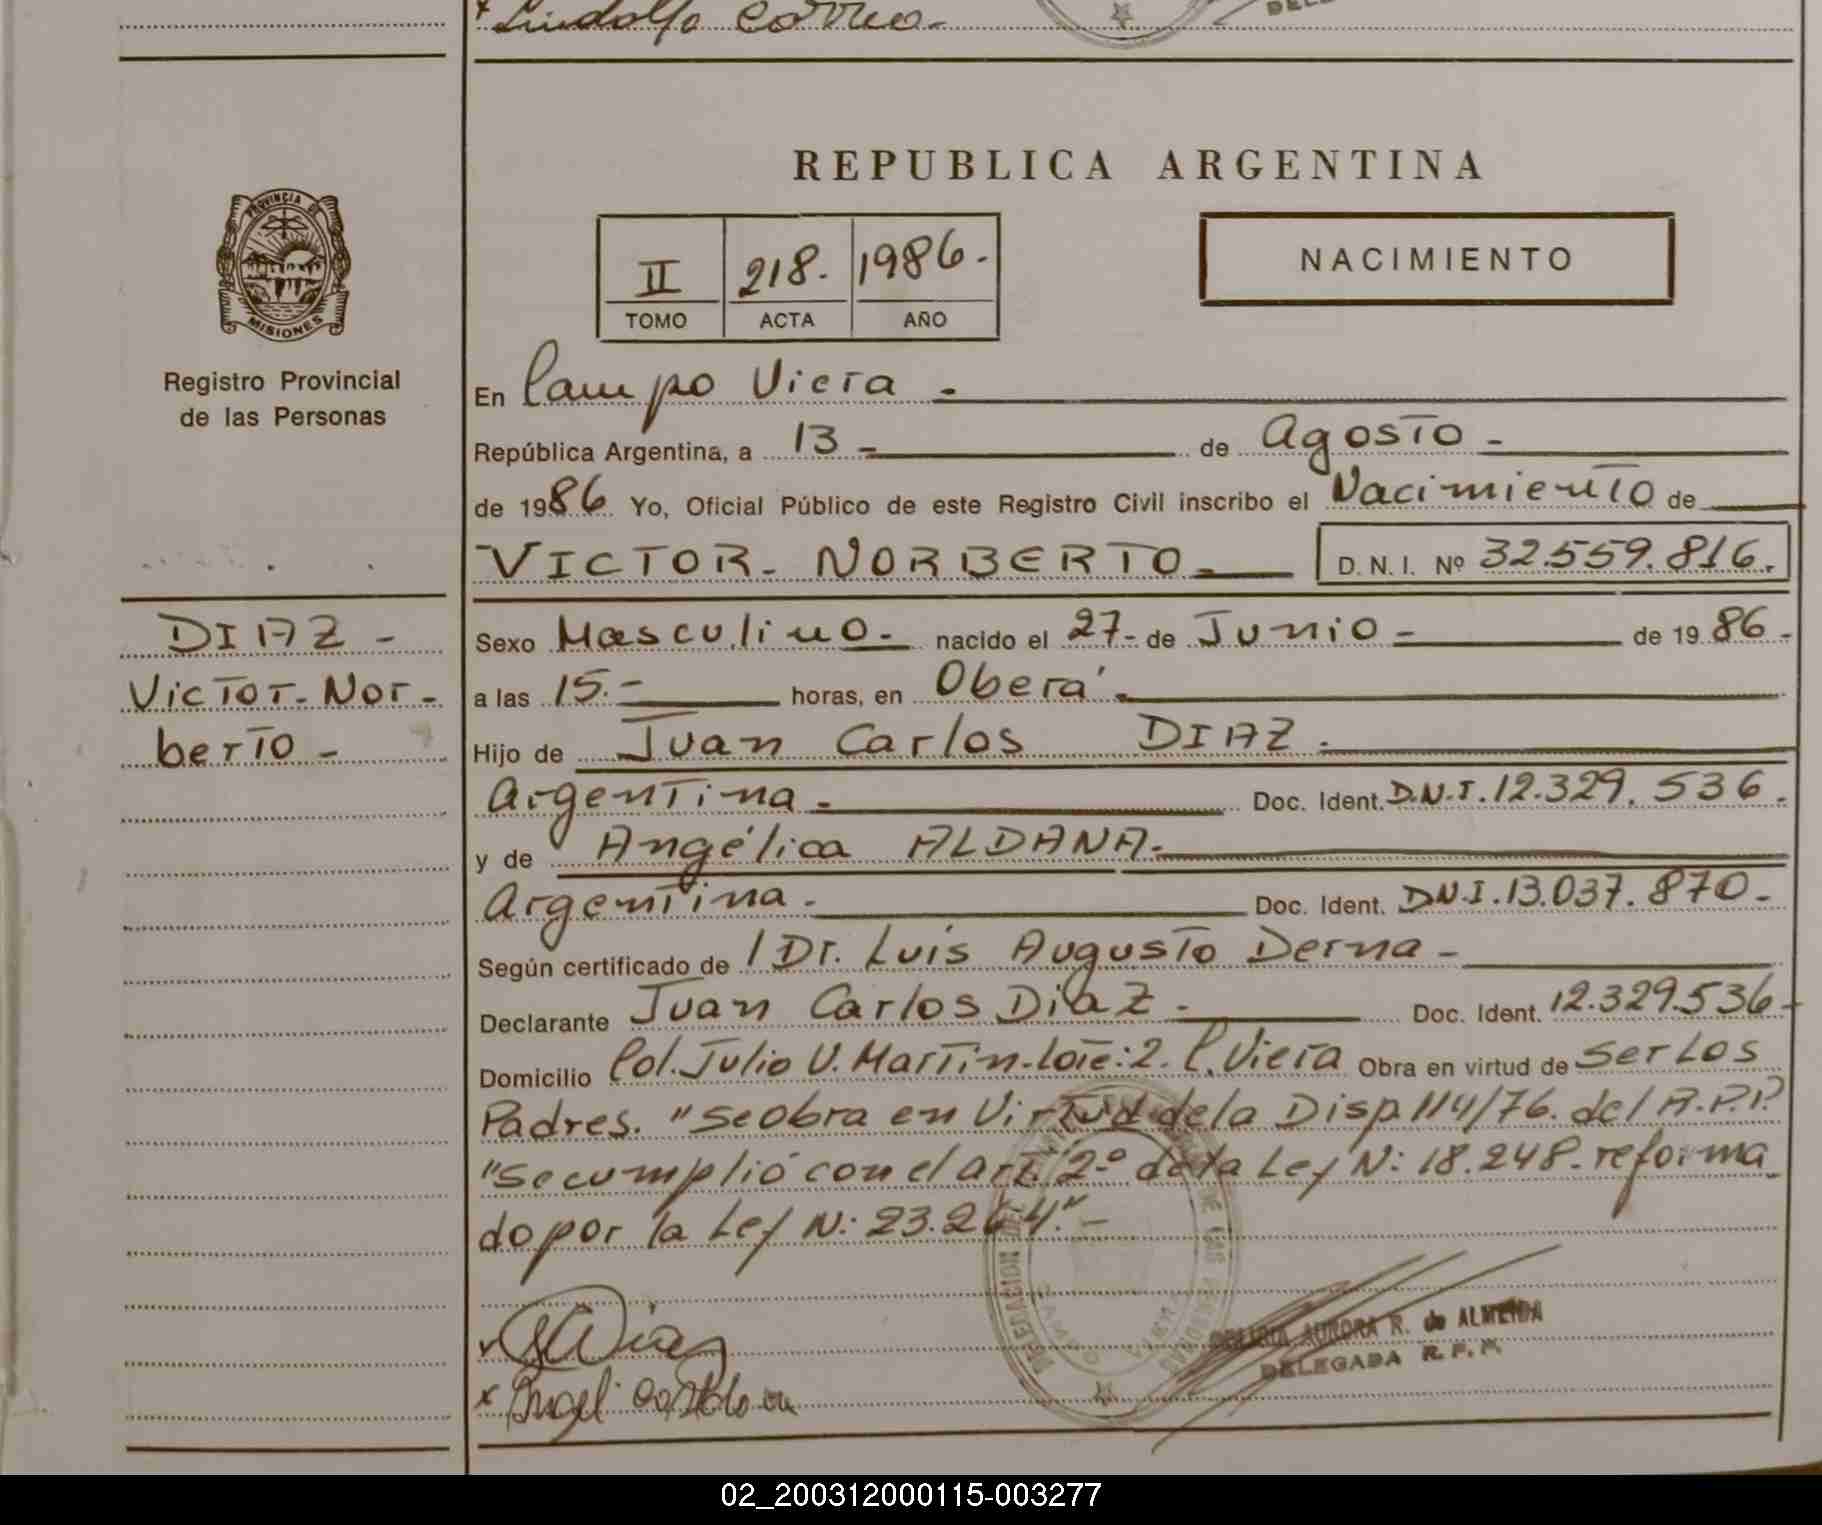 Lindolfo Correo.-
REPUBLICA ARGENTINA
PROVINCIA DE
MISIONES
Registro Provincial
de las Personas
II 218. 1986.-
TOMO ACTA AÑO
NACIMIENTO
En Campo Viera.-
República Argentina, a 13- de Agosto-
de 1986. Yo, Oficial Público de este Registro Civil inscribo el Nacimiento de
VICTOR- NORBERTO- D. N. I. Nº 32.559.816.
DIAZ-
Victor-Nor-
berto-
Sexo Masculino.- nacido el 27- de Junio- de 1986.-
a las 15.- horas, en Oberá.-
Hijo de Juan Carlos DIAZ.-
Argentina.- Doc. Ident. D.N.I. 12.329.536.
y de Angélica ALDANA.-
Argentina.- Doc. Ident. D.N.I. 13.037.870.-
Según certificado de Dr. Luis Augusto Derna-
Declarante Juan Carlos Diaz.- Doc. Ident. 12.329.536-
Domicilio Col. Julio U. Martin-Lote:2. C. Viera Obra en virtud de Ser Los
Padres. "Se obra en Virtud de la Disp. 114/76. del R.P.P.
"Se cumplió con el art. 2-º de la Ley N: 18.248-reforma
do por la Ley N: 23.264."-
DELEGACION DEL DE LAS PERSONAS
CAMPO VIERA
AURORA R. de ALMEIDA
DELEGADA R. P. P.
02_200312000115-003277